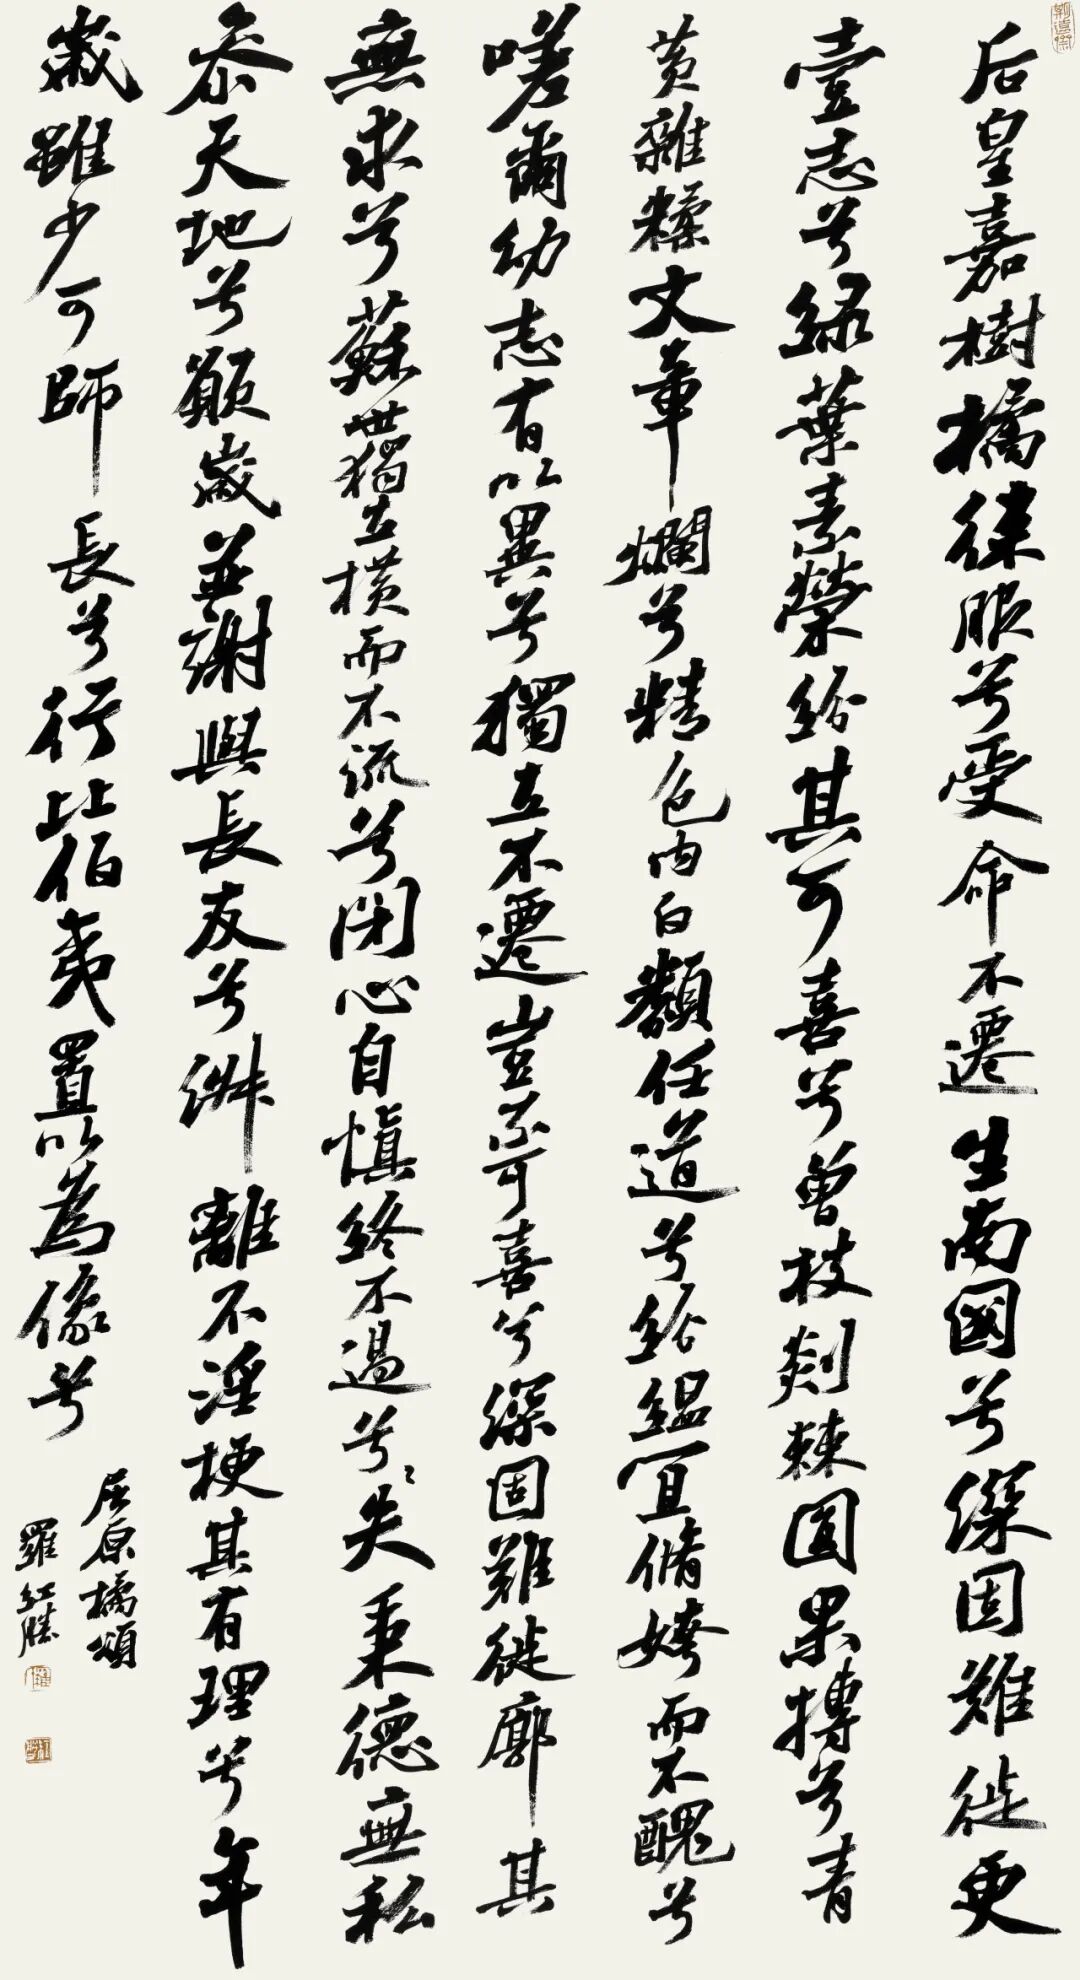 后皇嘉樹橘徕服兮受命不遷生南國兮深固難徙更
壹志兮綠葉素榮紛其可喜兮曾枝剡棘圓果摶兮青
黃雜糅文章爛兮精色內白類任道兮紛緼宜脩姱而不醜兮
嗟爾幼志有以異兮獨立不遷豈不可喜兮深固難徙廓其
無求兮蘇世獨立橫而不流兮閉心自慎終不過兮〻失秉德無私
叅天地兮願歲並謝與長友兮淑離不淫梗其有理兮年
歲雖少可師長兮行比伯夷置以為像兮
屈原橘頌
羅紅勝